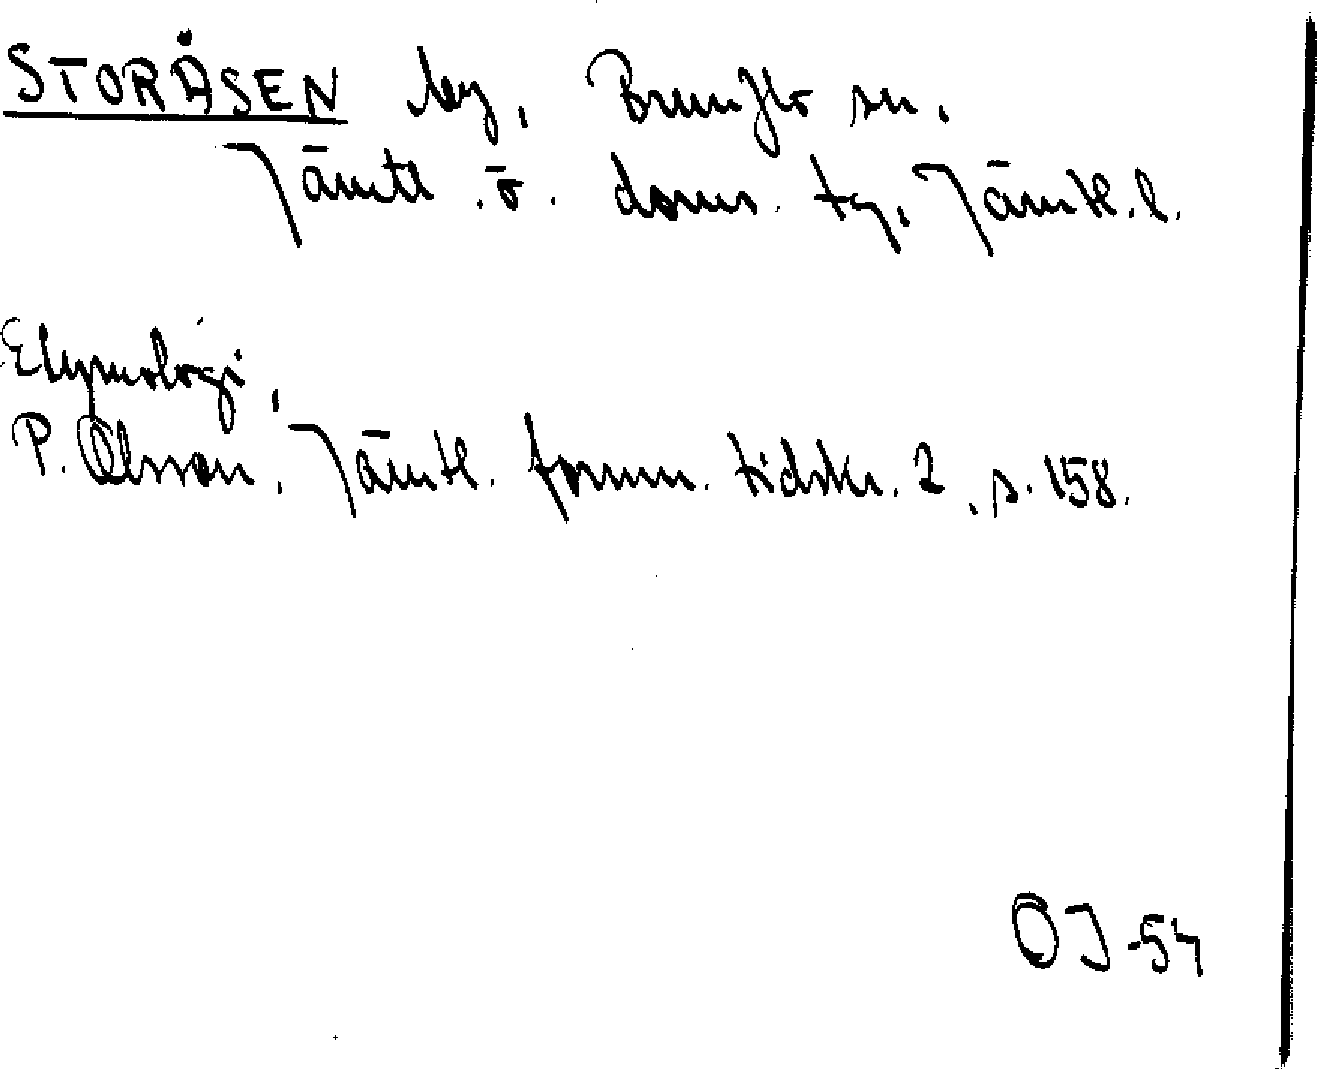 STORÅSEN by, Brunflo sn.
Jämtl. ö. doms. tg, Jämtl. l.
Etymologi,
P. Olsson, Jämtl. fornm. tidskr. 2, s. 158.
ÖJ -54